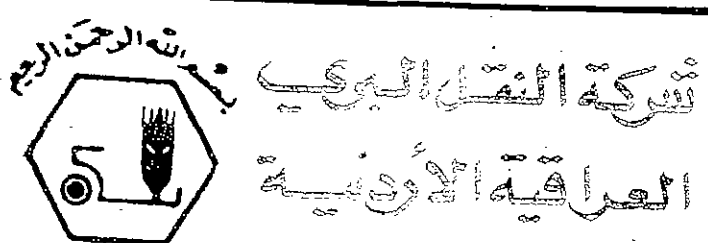 بسم الله الرحمن الرحيم
شركة النقل البري
العراقية الأردنية